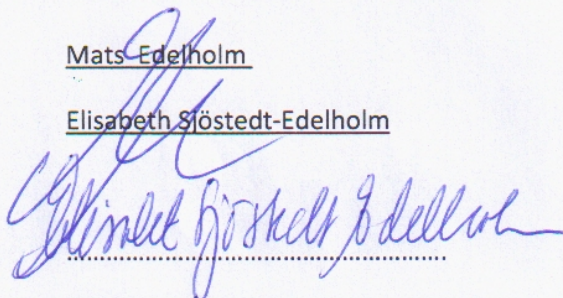 Mats Edelholm
Elisabeth Sjöstedt-Edelholm
Elisabet Sjöstedt Edelholm